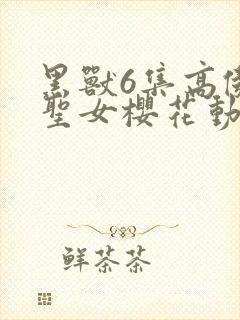 黑獸6集高傲
聖女櫻花動
鮮茶茶